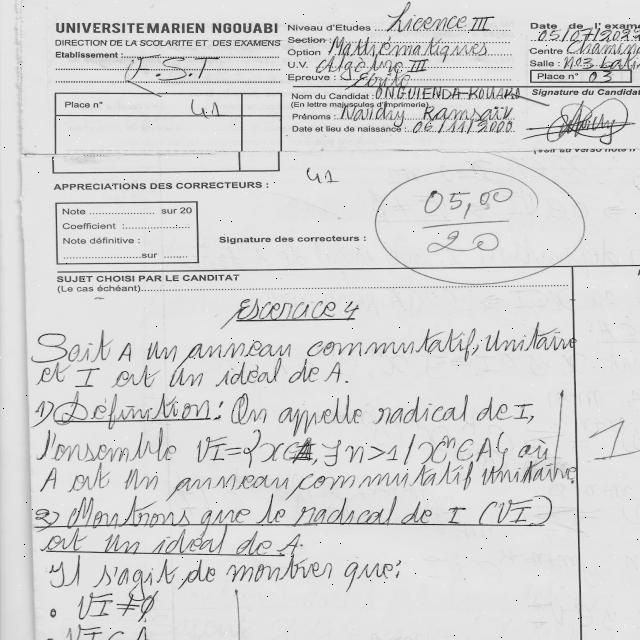 UNIVERSITE MARIEN NGOUABI
DIRECTION DE LA SCOLARITE ET DES EXAMENS
Etablissement :
F.S.T
Niveau d'Etudes : Licence III
Section
Option Mathématiques
U.V. Algèbre III
Epreuve : Ecrite
Date de l'exame
05/07/202
Centre
Salle : N03
Place n° 03
Place n°
41
Nom du Candidat :
(En lettre majuscules d'imprimerie)
Prénoms :
Date et lieu de naissance : 06/11/2000
Signature du Candidat
(Voir au verso note n
APPRECIATIONS DES CORRECTEURS :
41
Note sur 20
Coefficient :
Note définitive :
sur
Signature des correcteurs :
05,00
20
SUJET CHOISI PAR LE CANDITAT
(Le cas échéant)
Exercice 4
Soit A un anneau commutatif, unitaire
et I est un idéal de A.
1) Définition : On appelle radical de I,
l'ensemble √I = {x∈A, ∃n>1 / xⁿ∈A} où
1
A est un anneau commutatif unitaire.
2) Montrons que le radical de I (√I)
est un idéal de A
Il s'agit de montrer que :
• √I ≠ ∅
• √I ⊂ A